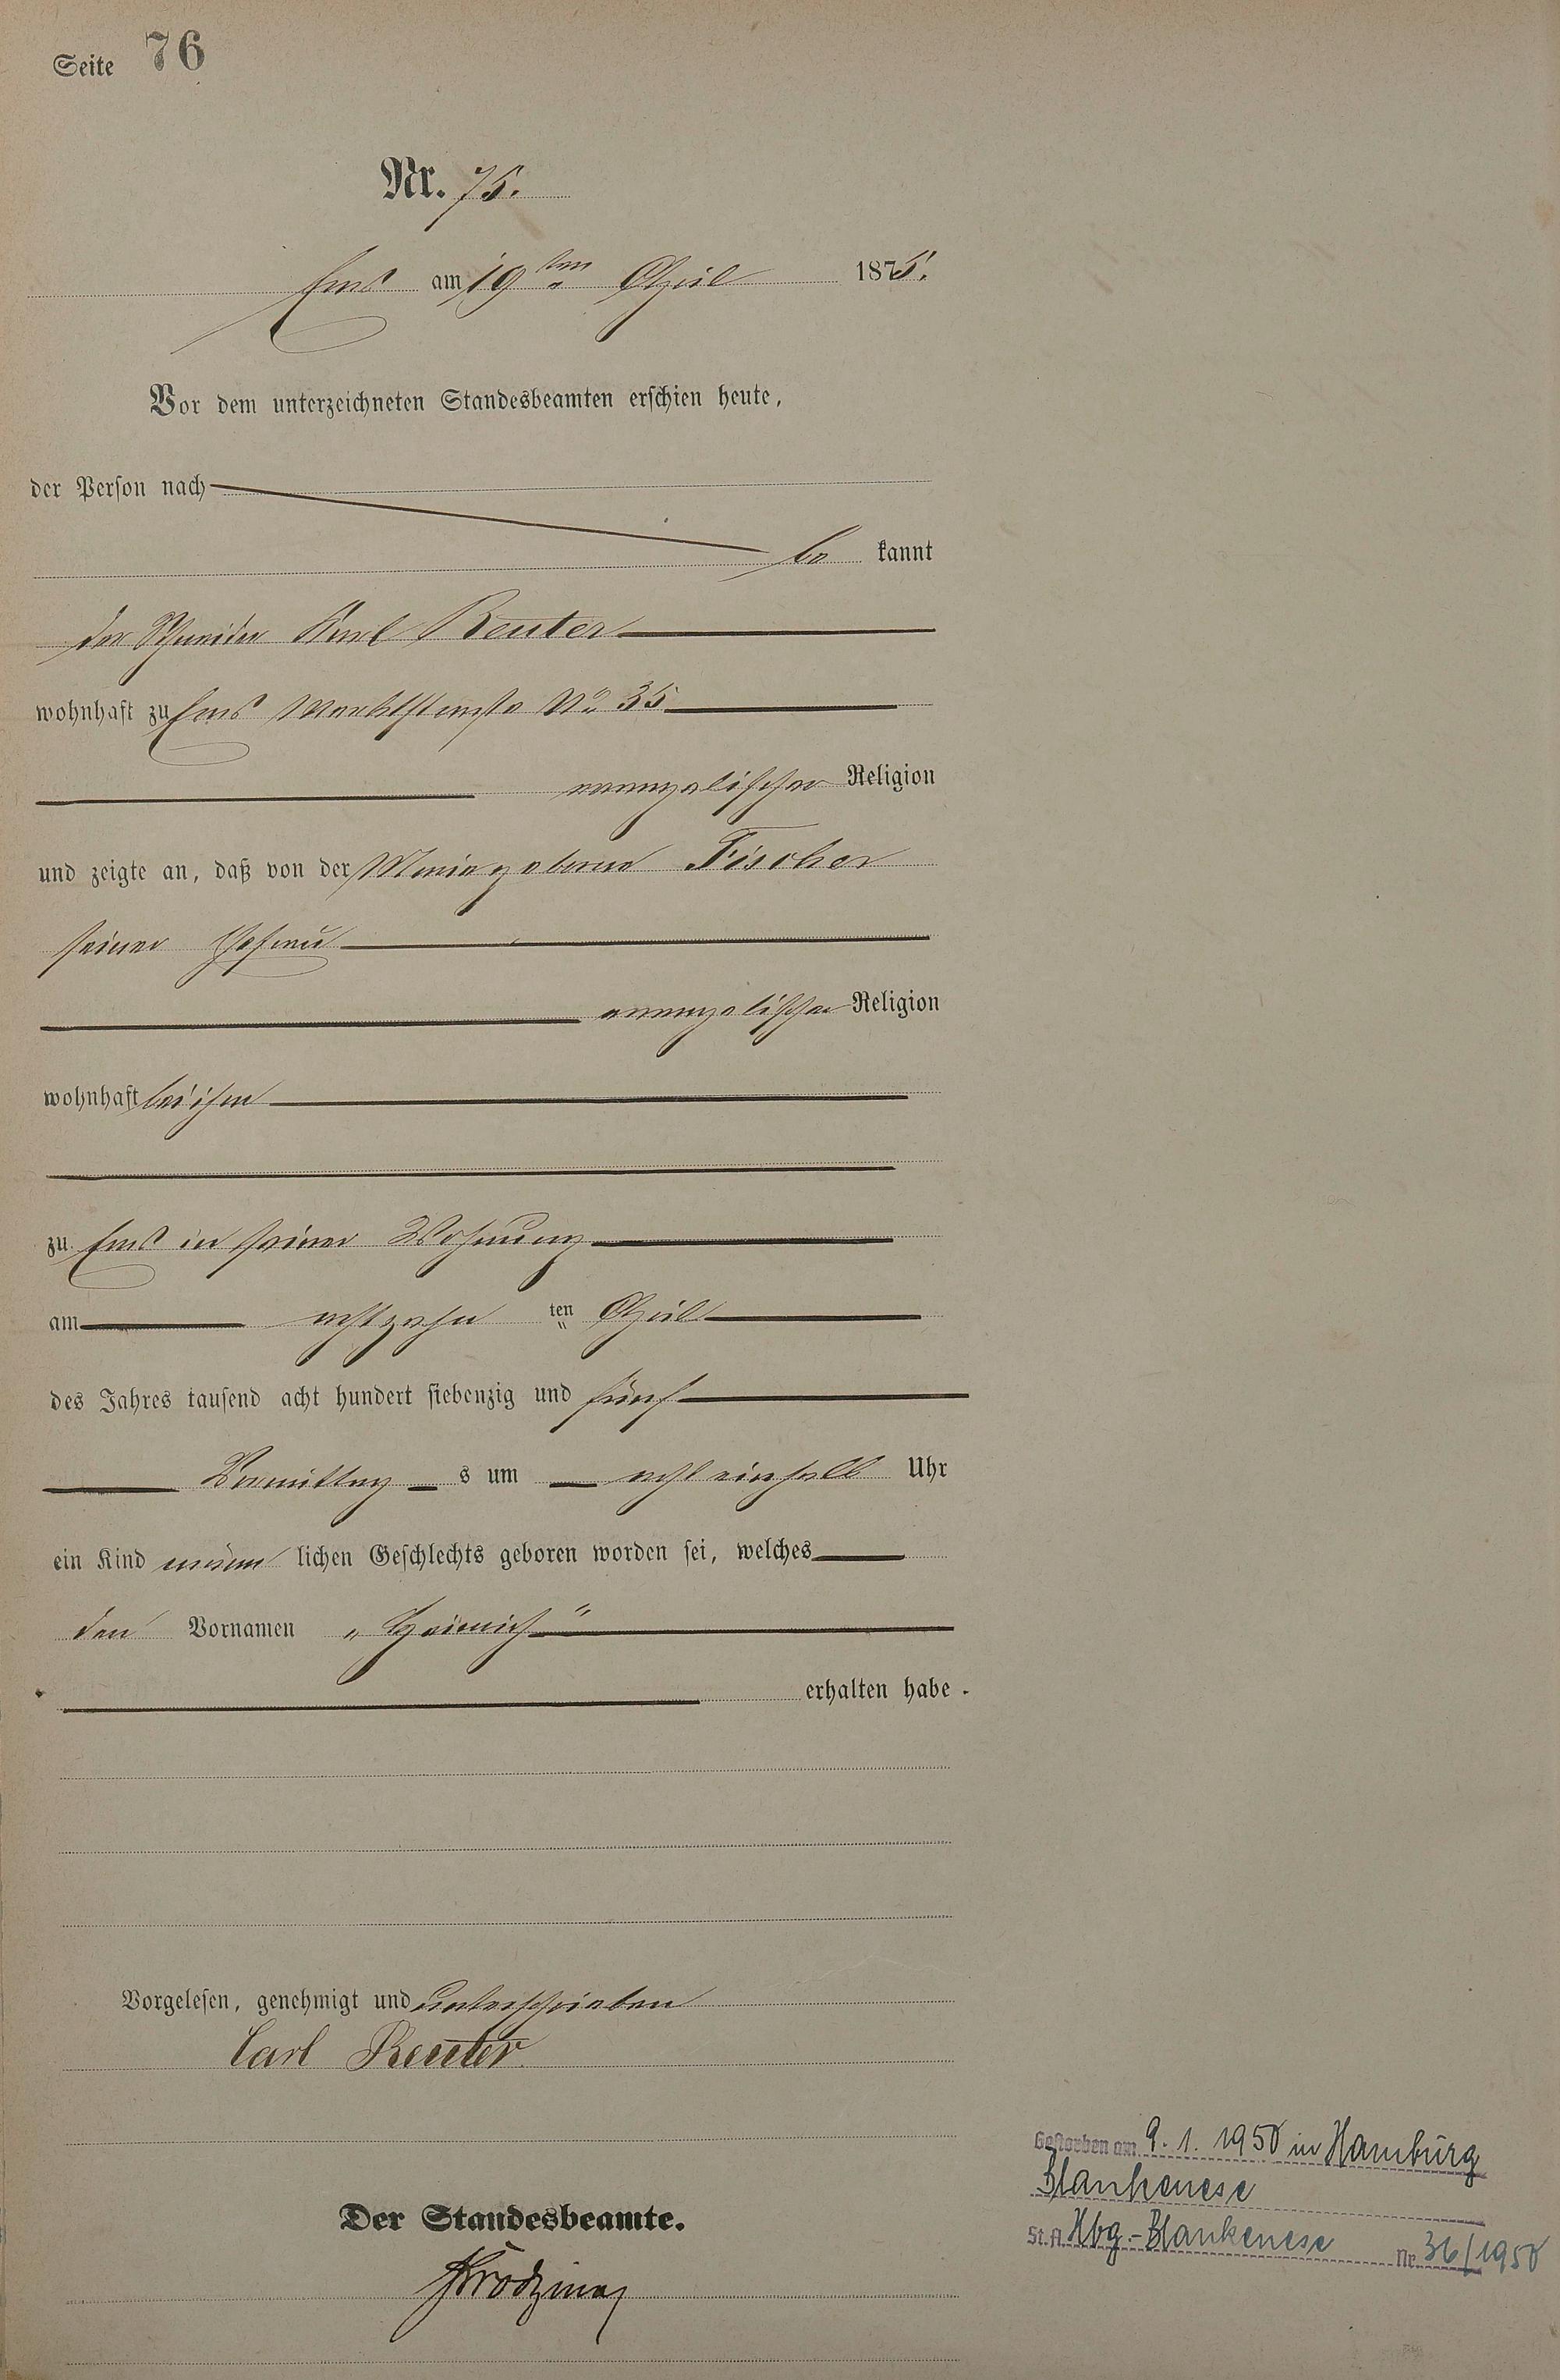 Seite 76
Nr. 75.
Ems am 19ten April 1875.
Vor dem unterzeichneten Standesbeamten erschien heute,
der Person nach
be kannt
der Schneider Karl Reuter
wohnhaft zu Ems Marktstraße No 35
evangelischer Religion
und zeigte an, daß von der Maria geborene Fischer
seiner Ehefrau
evangelischer Religion
wohnhaft bei ihm
zu Ems in seiner Wohnung
am achtzehn ten April
des Jahres tausend acht hundert siebenzig und fünf
Vormittag s um acht einhalb Uhr
ein Kind männ lichen Geschlechts geboren worden sei, welches
den Vornamen „Heinrich"
erhalten habe.
Vorgelesen, genehmigt und unterschrieben
Carl Reuter
Der Standesbeamte.
Gestorben am 9.1.1950 in Hamburg
Blankenese
St.A. Hbg.-Blankenese Nr. 36/1950